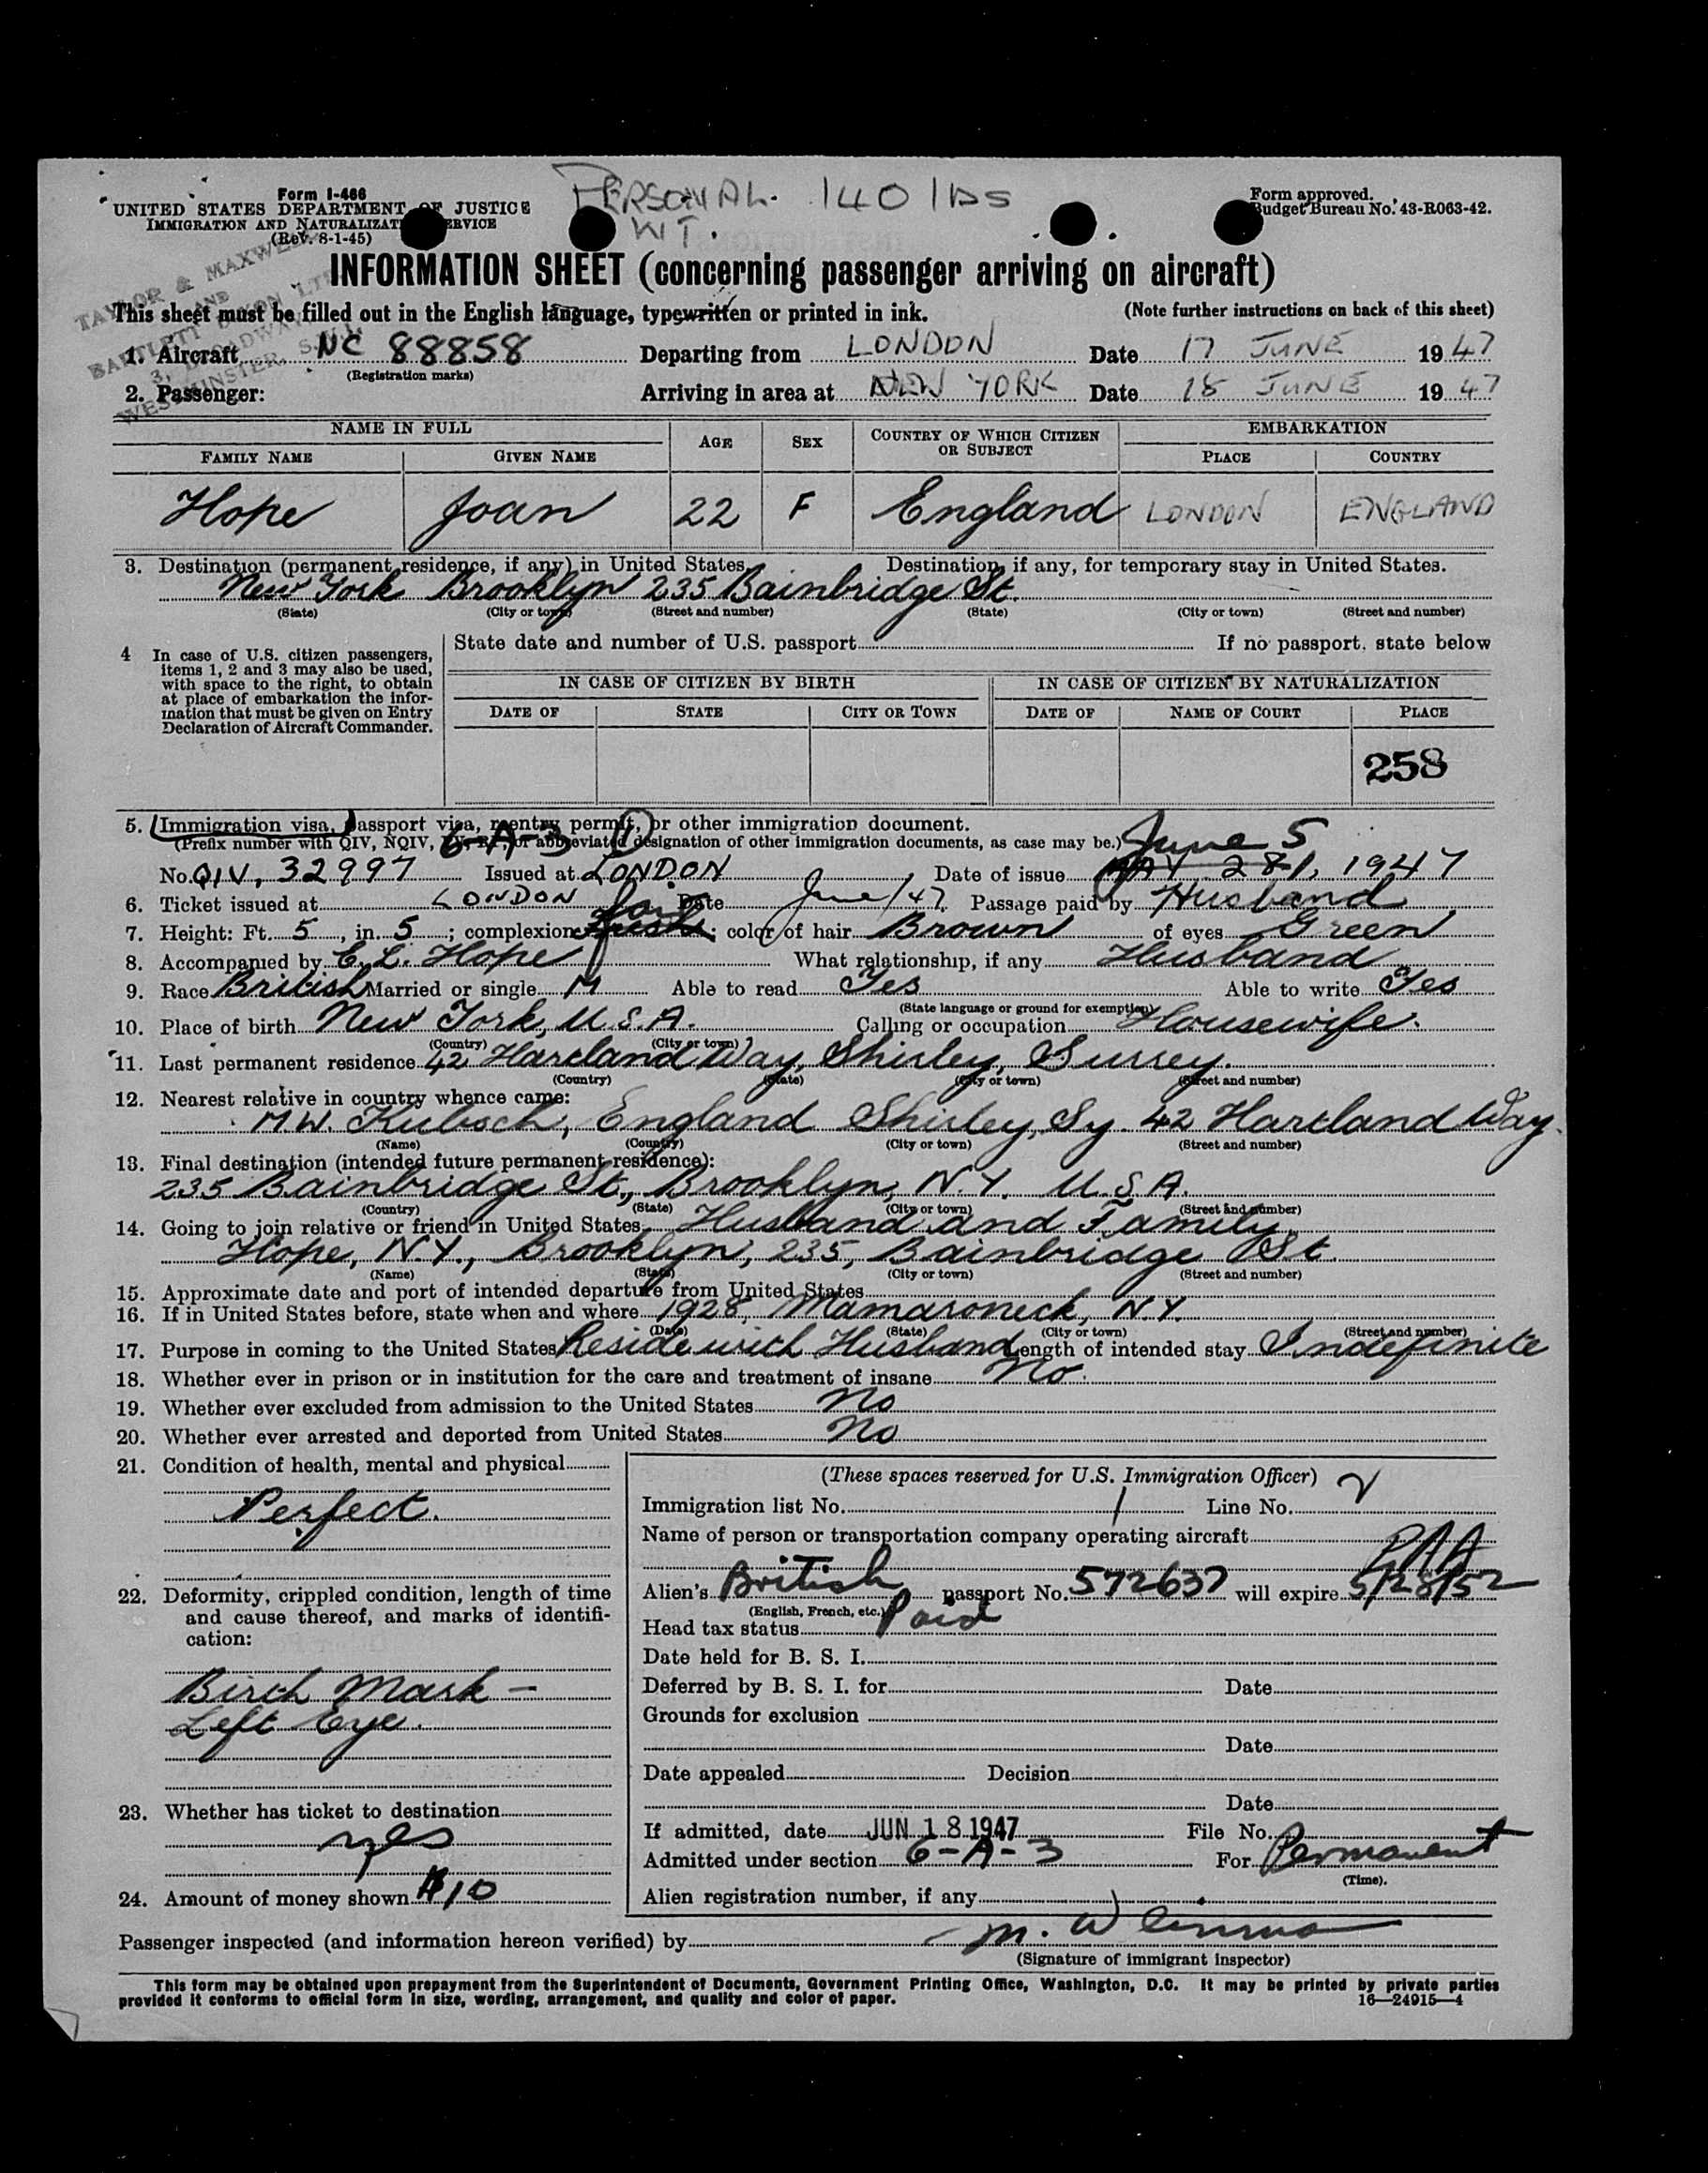 Form I-466
UNITED STATES DEPARTMENT OF JUSTICE
IMMIGRATION AND NATURALIZATION SERVICE
(Rev. 8-1-45)
PERSONAL. 140 lbs
WT.
Form approved.
Budget Bureau No. 43-R063-42.
TAYLOR & MAXWELL
AND
BARTLETT DIXON LTD
3, BROADWAY
WESTMINSTER, S.W.1.
INFORMATION SHEET (concerning passenger arriving on aircraft)
This sheet must be filled out in the English language, typewritten or printed in ink. (Note further instructions on back of this sheet)
1. Aircraft NC 88858 Departing from LONDON Date 17 JUNE 1947
(Registration marks)
2. Passenger: Arriving in area at NEW YORK Date 18 JUNE 1947
NAME IN FULL AGE SEX COUNTRY OF WHICH CITIZEN OR SUBJECT EMBARKATION
FAMILY NAME GIVEN NAME PLACE COUNTRY
Hope Joan 22 F England LONDON ENGLAND
3. Destination (permanent residence, if any) in United States Destination, if any, for temporary stay in United States.
New York Brooklyn 235 Bainbridge St.
(State) (City or town) (Street and number) (State) (City or town) (Street and number)
4 In case of U.S. citizen passengers, items 1, 2 and 3 may also be used, with space to the right, to obtain at place of embarkation the information that must be given on Entry Declaration of Aircraft Commander.
State date and number of U.S. passport If no passport, state below
IN CASE OF CITIZEN BY BIRTH IN CASE OF CITIZEN BY NATURALIZATION
DATE OF STATE CITY OR TOWN DATE OF NAME OF COURT PLACE
258
5. Immigration visa, passport visa, reentry permit, or other immigration document.
(Prefix number with QIV, NQIV, PV, RP, or abbreviated designation of other immigration documents, as case may be.)
6-A-3 June 5
No. QIV, 32997 Issued at LONDON Date of issue MAY 28, 1947
6. Ticket issued at LONDON Date June/47 Passage paid by Husband
7. Height: Ft. 5, in. 5; complexion fair; color of hair Brown of eyes Green
8. Accompanied by E. L. Hope What relationship, if any Husband
9. Race British Married or single M Able to read Yes Able to write Yes
(State language or ground for exemption)
10. Place of birth New York, U.S.A. Calling or occupation Housewife.
(Country) (City or town)
11. Last permanent residence 42 Hartland Way, Shirley, Surrey.
(Country) (State) (City or town) (Street and number)
12. Nearest relative in country whence came:
M.W. Kubsch, England Shirley, Sy. 42 Hartland Way.
(Name) (Country) (City or town) (Street and number)
13. Final destination (intended future permanent residence):
235 Bainbridge St., Brooklyn, N.Y. U.S.A.
(Country) (State) (City or town) (Street and number)
14. Going to join relative or friend in United States Husband and Family
Hope, N.Y., Brooklyn, 235, Bainbridge St.
(Name) (State) (City or town) (Street and number)
15. Approximate date and port of intended departure from United States
16. If in United States before, state when and where 1928, Mamaroneck, N.Y.
(Date) (State) (City or town) (Street and number)
17. Purpose in coming to the United States Reside with Husband Length of intended stay Indefinite
18. Whether ever in prison or in institution for the care and treatment of insane No.
19. Whether ever excluded from admission to the United States No
20. Whether ever arrested and deported from United States No
21. Condition of health, mental and physical
Perfect.
22. Deformity, crippled condition, length of time and cause thereof, and marks of identification:
Birth Mark –
Left Eye.
23. Whether has ticket to destination
yes
24. Amount of money shown $10
(These spaces reserved for U.S. Immigration Officer)
Immigration list No. 1 Line No. 2
Name of person or transportation company operating aircraft
PAA
Alien's British passport No. 572637 will expire 5/28/52
(English, French, etc.)
Head tax status Paid
Date held for B. S. I.
Deferred by B. S. I. for Date
Grounds for exclusion
Date
Date appealed Decision
Date
If admitted, date JUN 18 1947 File No.
Admitted under section 6-A-3 For Permanent
(Time).
Alien registration number, if any
Passenger inspected (and information hereon verified) by M. W
(Signature of immigrant inspector)
This form may be obtained upon prepayment from the Superintendent of Documents, Government Printing Office, Washington, D.C. It may be printed by private parties
provided it conforms to official form in size, wording, arrangement, and quality and color of paper. 16—24915—4